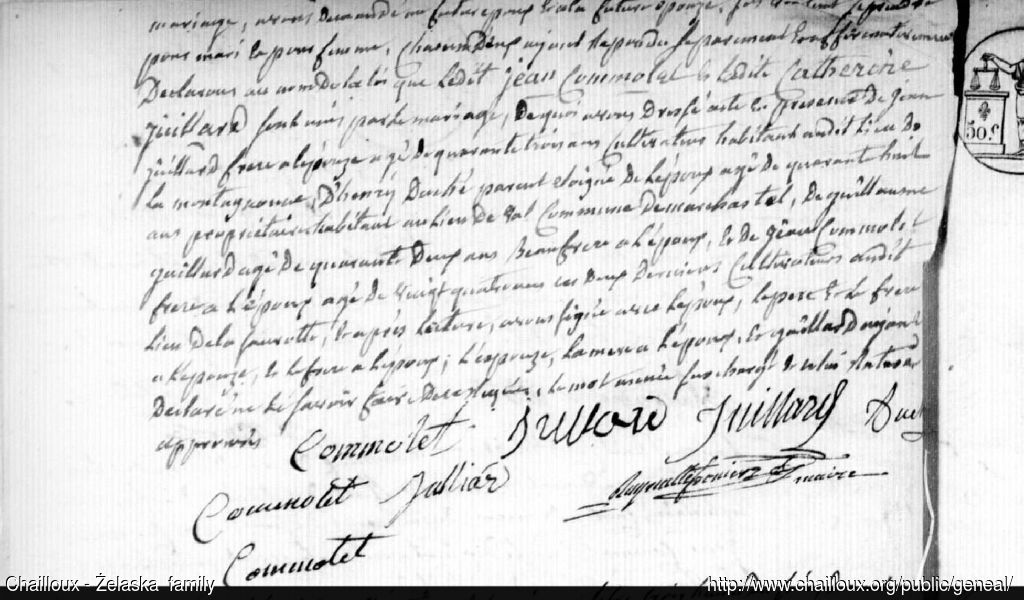 mariage, avons demandé au futur epoux et a la future Epouze,
pour mari et pour femme, chacun Deux ayant repondu separement et affirmativement
Declarons au nom de la loi que Ledit jean Commolet et Ladite Catherine
juillard sont unis par le mariage, De quoi avons Dressé acte En presence De jean
juillard frere a lepouze agé De quarante trois ans Cultivateur habitant audit Lieu De
La montagnoune, D'henry Duché parent eloigné De Lépoux agé De quarante huit
ans propriétaire habitant au Lieu De Commune De marchastel, De guillaume
juillard agé De quarante Deux ans Beaufrere a l'époux, et De jean Commolet
frere a L'époux agé De vingt quatre ans ces deux Derniers Cultivateurs audit
Lieu De la et après Lecture, avons signé avec Lépoux, Le pere et Le frere
a L'épouze, et le frere a Lépoux; L'épouze, La mere a L'époux, et guillard ayant
Declaré ne Le savoir faire De ce Requis, Le mot surchargé
approuvés
50.C
Commolet juillard Juillard Duché
Commolet Julliár
maire
Commolet
Chailloux - Żelaska family
http://www.chailloux.org/public/geneal/